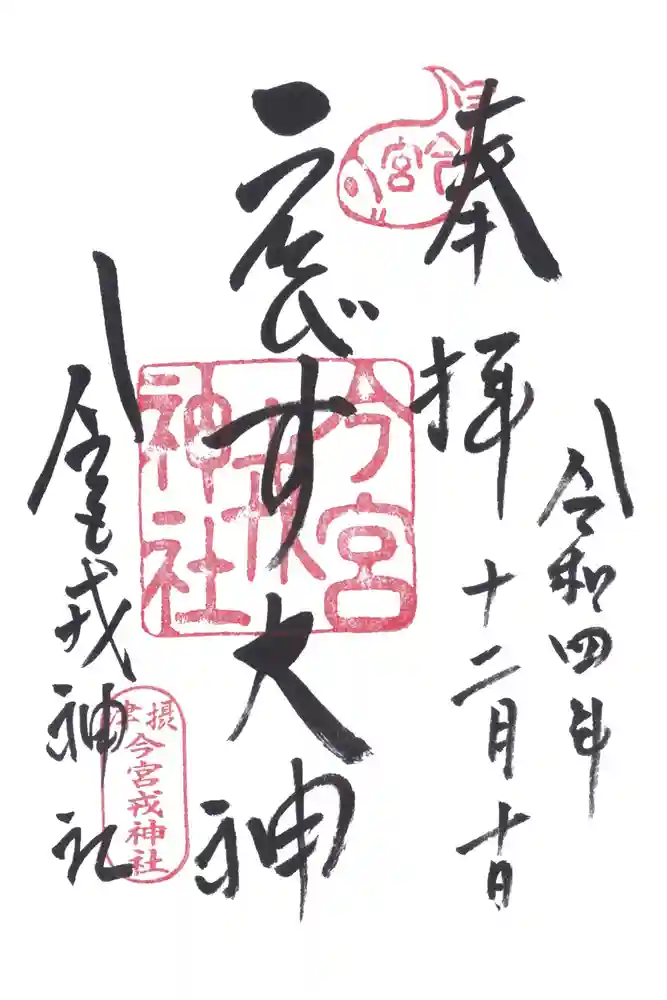 令和四年
奉拝
十二月十日
今宮
ゑびす大神
今宮戎神社
今宮戎神社
摂津
今宮戎神社